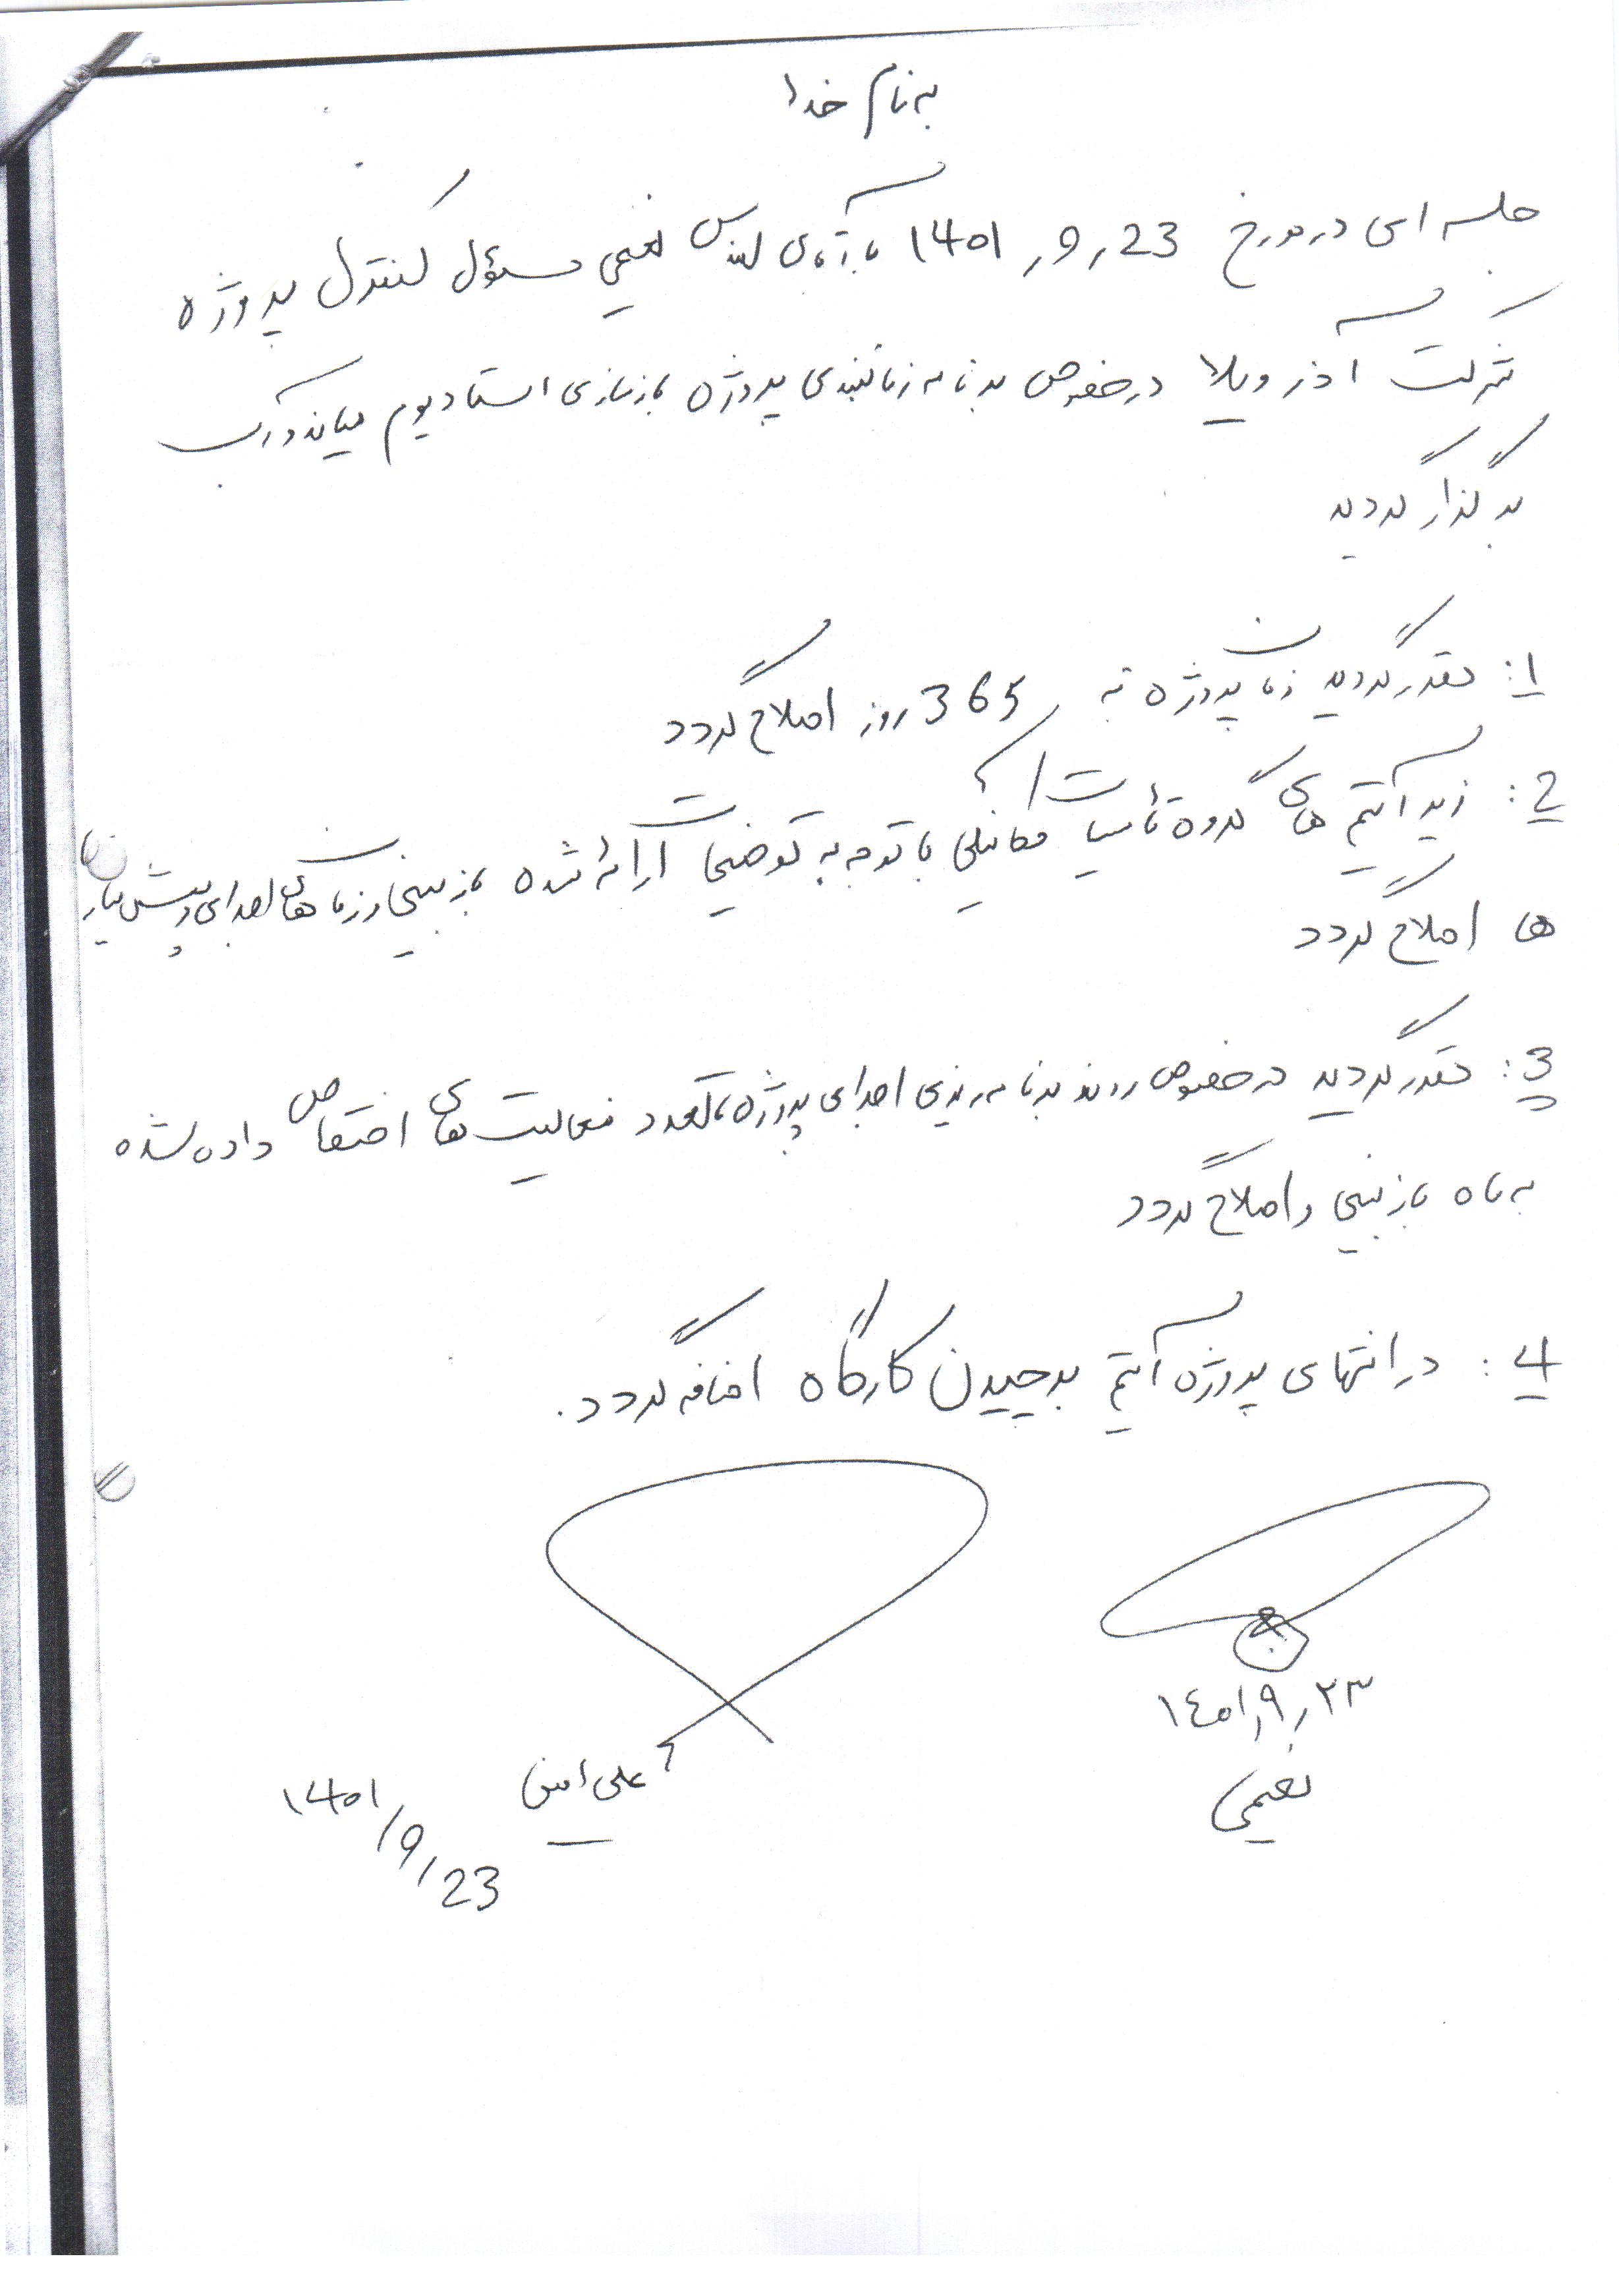 به نام خدا
جلسه ای در مورخ 23ر9ر1401 با آقای مهندس نعیمی مسئول کنترل پروژه
شرکت آذر ویلا در خصوص برنامه زمانبندی پروژه بازسازی استادیوم میاندوآب
برگذار گردید
1: مقرر گردید زمان پروژه به 365 روز اصلاح گردد
2: زیر آیتم های گروه تأسیسات مکانیکی با توجه به توضیحات ارائه شده بازبینی و زمان های اجرای و پیش نیاز
ها اصلاح گردد
3: مقرر گردید در خصوص روند برنامه ریزی اجرای پروژه تعدد فعالیت های اختصاص داده شده
به ماه بازبینی و اصلاح گردد
4: در انتهای پروژه آیتم برچیدن کارگاه اضافه گردد.
۱٤۰۱ر۹ر۲۳
نعیمی
علی امینی
1401/9/23